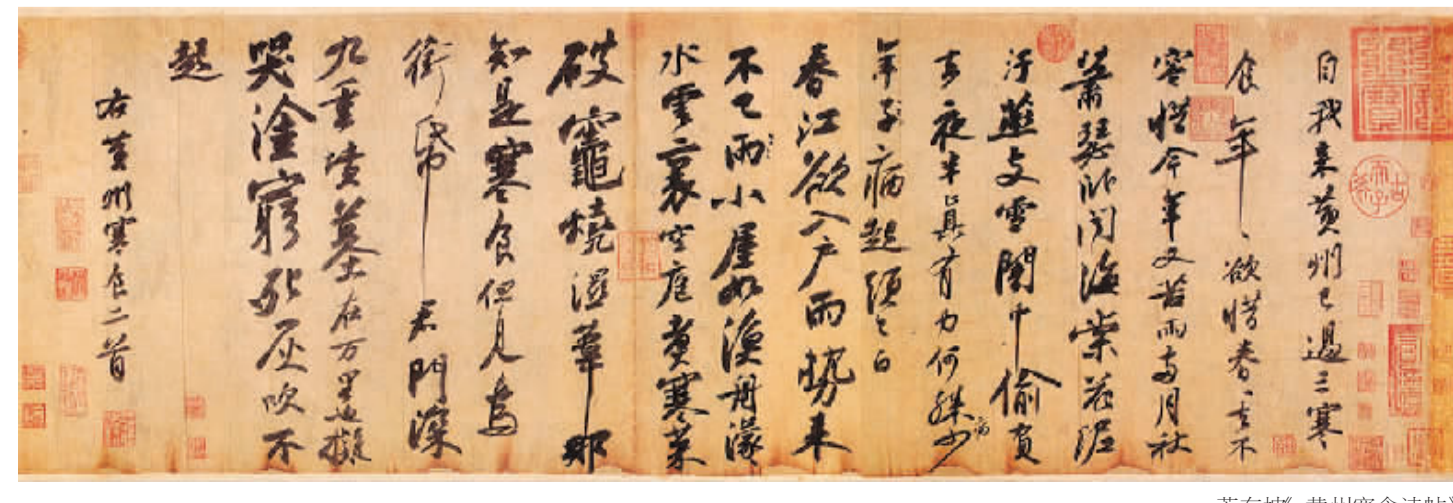 自我來黃州已過三寒
食年々欲惜春春去不
容惜今年又苦雨兩月秋
蕭瑟臥聞海棠花泥
汙燕支雪闇中偷負
去夜半真有力何殊病少
年子病起頭已白
春江欲入戶雨勢來
不已雨小屋如漁舟濛々
水雲裏空庖煮寒菜
破竈燒濕葦那
知是寒食但見烏
銜帋君門深
九重墳墓在万里也擬
哭塗窮死灰吹不
起
右黃州寒食二首
苏东坡《黄州寒食诗帖》